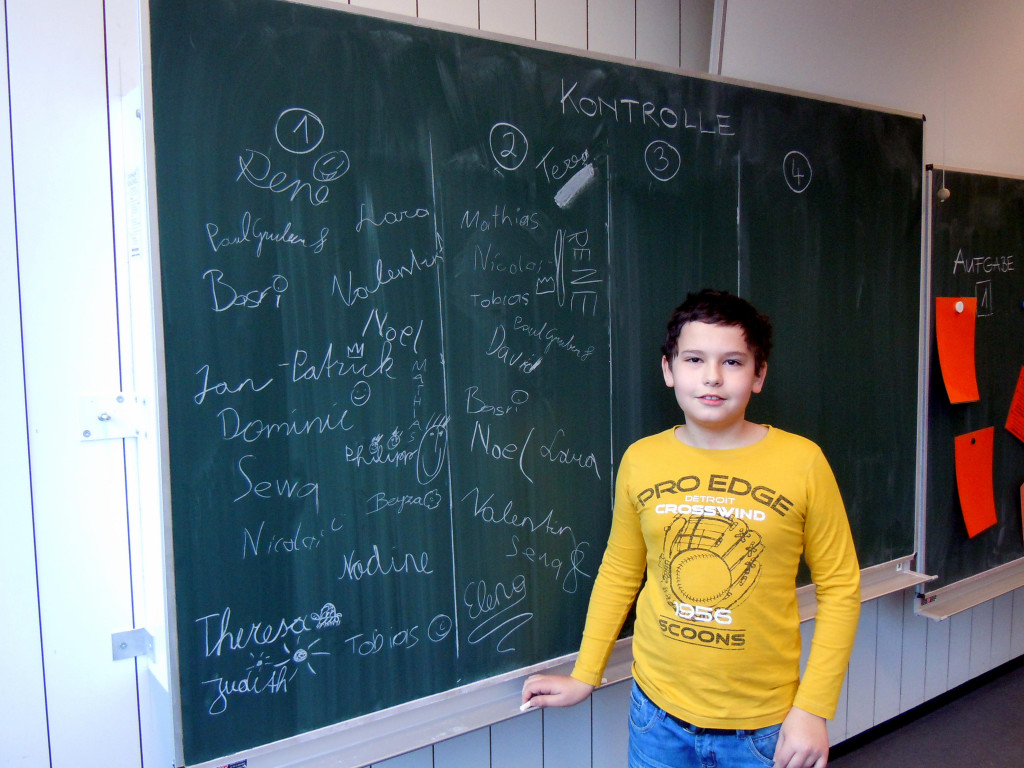 KONTROLLE
1
Rene
Lara
Basri
Valentin
Noel
Jan-Patrick
MATHIAS
Dominic
Philipp
Sewa
Beyza
Nicolai
Nadine
Theresa
Tobias
Judith
2
Mathias
Nicolai
RENE
Tobias
David
Basri
Noel
Lara
Valentin
Elena
3
4
AUFGABE
1
PRO EDGE
DETROIT
CROSSWIND
1956
SCOONS